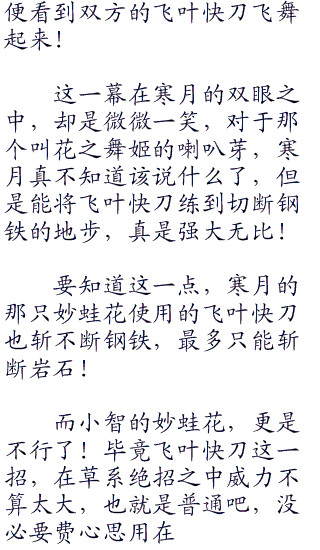 便看到双方的飞叶快刀飞舞
起来！
这一幕在寒月的双眼之
中，却是微微一笑，对于那
个叫花之舞姬的喇叭芽，寒
月真不知道该说什么了，但
是能将飞叶快刀练到切断钢
铁的地步，真是强大无比！
要知道这一点，寒月的
那只妙蛙花使用的飞叶快刀
也斩不断钢铁，最多只能斩
断岩石！
而小智的妙蛙花，更是
不行了！毕竟飞叶快刀这一
招，在草系绝招之中威力不
算太大，也就是普通吧，没
必要费心思用在